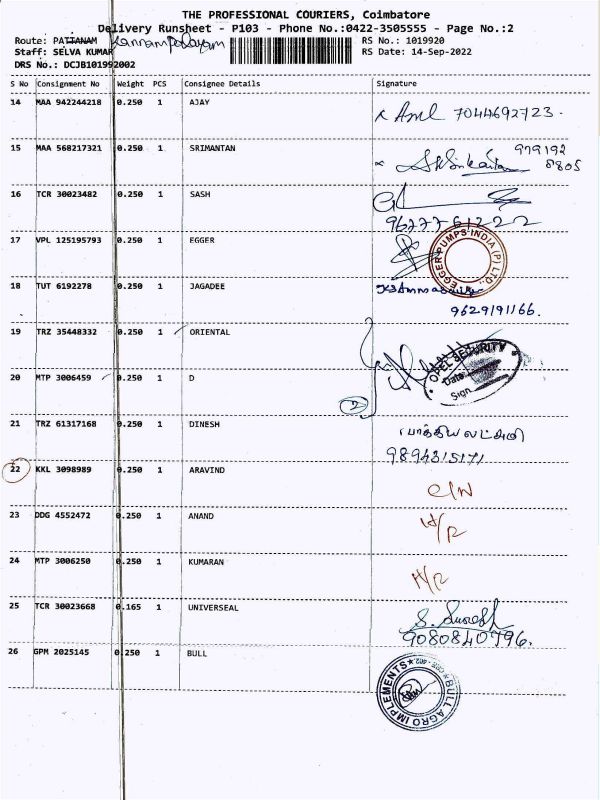 THE PROFESSIONAL COURIERS, Coimbatore
Delivery Runsheet - P103 - Phone No.:0422-3505555 - Page No.:2
Route: PATTANAM Kannampalayam RS No.: 1019920
Staff: SELVA KUMAR RS Date: 14-Sep-2022
DRS No.: DCJB101992002
S No Consignment No Weight PCS Consignee Details Signature
14 MAA 942244218 0.250 1 AJAY x Aml 7044692723.
15 MAA 568217321 0.250 1 SRIMANTAN 979192
8805
16 TCR 30023482 0.250 1 SASH
9677761222
17 VPL 125195793 0.250 1 EGGER EGGER PUMPS INDIA (P) LTD.,
18 TUT 6192278 0.250 1 JAGADEE
9629191166.
19 TRZ 35448332 0.250 1 ORIENTAL
20 MTP 3006459 0.250 1 D OPEL SECURITY
Date
Sign
2
21 TRZ 61317168 0.250 1 DINESH பாக்கியலட்சுமி
9894315171
22 KKL 3098989 0.250 1 ARAVIND C/N
23 DDG 4552472 0.250 1 ANAND H/R
24 MTP 3006250 0.250 1 KUMARAN H/R
25 TCR 30023668 0.165 1 UNIVERSEAL S. Suresh
9080840796.
26 GPM 2025145 0.250 1 BULL BULL AGRO IMPLEMENTS